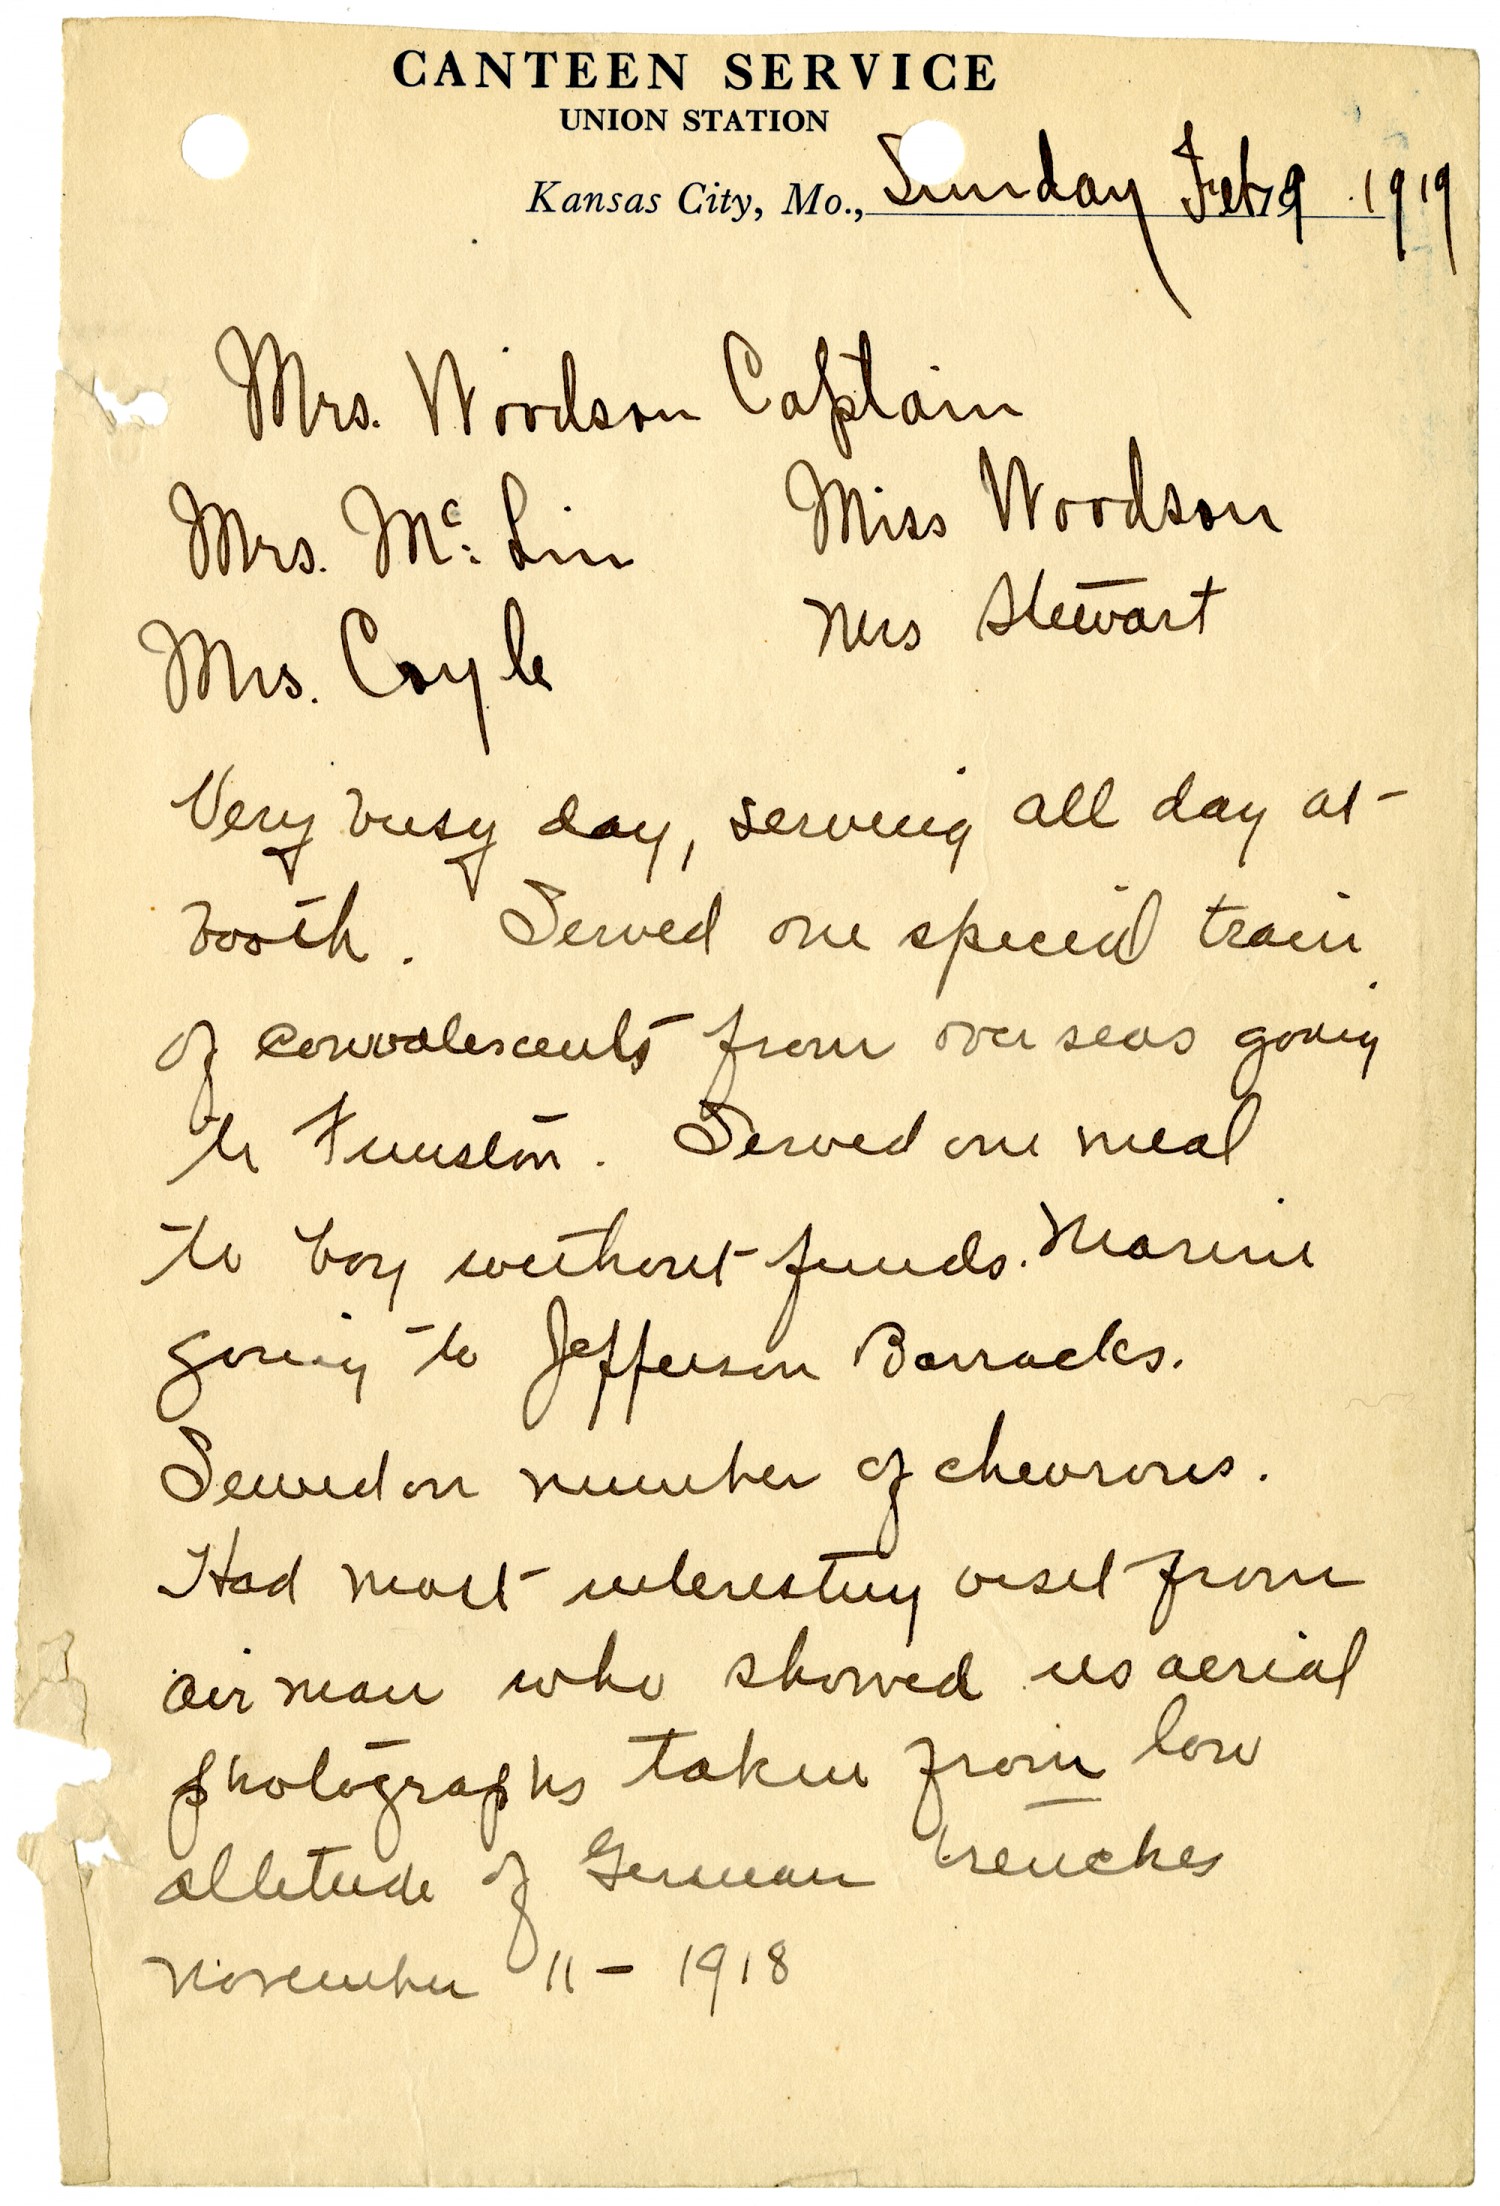 CANTEEN SERVICE
UNION STATION
Kansas City, Mo., Sunday Feb 9 1919
Mrs. Woodson Captain
Mrs. Mc Lin Miss Woodson
Mrs. Coyle Mrs Stewart
Very busy day, serving all day at
booth. Served one special train
of convalescents from overseas going
to Funston. Served one meal
to boy without funds. Marine
going to Jefferson Barracks.
Sewed on number of chevrons.
Had most interesting visit from
air man who showed us aerial
photographs taken from low
altitude of German trenches
November 11 - 1918